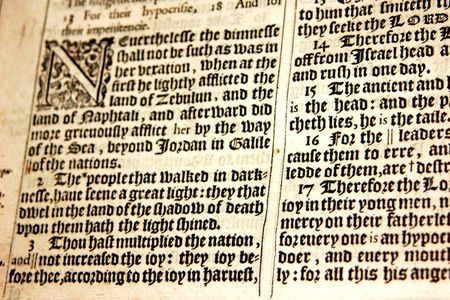 13 For their hypocrisie, 18 And for
their impenitencie.
NEuerthelesse the dimnesse
shall not be such as was in
her veration, when at the
first he lightly afflicted the
land of Zebulun, and the
land of Naphtali, and afterward did
more grieuously afflict her by the way
of the Sea, beyond Jordan in Galile
||of the nations.
2 The people that walked in dark-
nesse, haue seene a great light: they that
dwel in the land of the shadow of death
vpon them hath the light shined.
3 Thou hast multiplied the nation,
and ||not increased the ioy: they ioy be-
fore thee, according to the ioy in haruest,
to him that smiteth
they seeke the LORD
14 Therefore the
off from Israel head a
and rush in one day.
15 The ancient and
is the head: and the
cheth lies, he is the taile.
16 For || the leaders
cause them to erre, an
ledde of them, are † destr
17 Therefore the Lo
ioy in their yong men, n
mercy on their fatherle
for euery one is an hypoc
doer, and euery mout
ly: for all this his ange